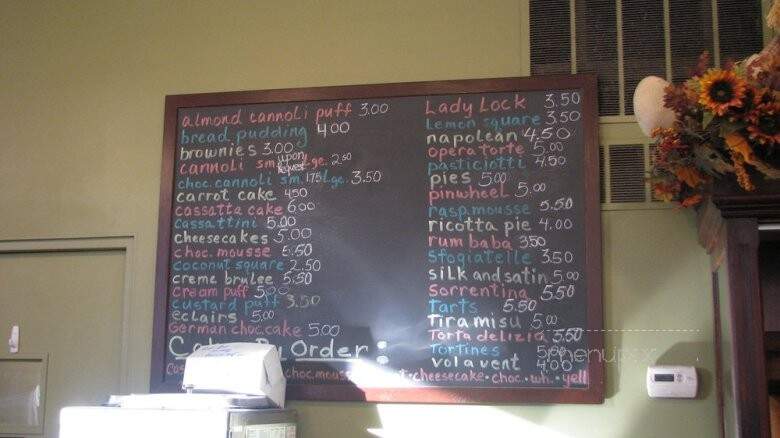 almond cannoli puff 3.00
bread pudding 4.00
brownies 3.00
cannoli sm. upon request Lge. 2.50
choc. cannoli sm. 1.75 Lge. 3.50
carrot cake 4.50
cassatta cake 6.00
cassattini 5.00
cheesecakes 5.00
choc. mousse 5.50
coconut square 2.50
creme brulee 5.50
cream puff 5.00
custard puff 3.50
eclairs 5.00
German choc. cake 5.00
Lady Lock 3.50
Lemon square 3.50
napolean 4.50
opera torte 5.00
pasticiotti 4.50
pies 5.00
pinwheel 5.00
rasp. mousse 5.50
ricotta pie 4.00
rum baba 3.50
Sfogiatelle 3.50
silk and satin 5.00
Sorrentina 5.50
Tarts 5.50
Tiramisu 5.00
Torta delizia 5.50
Tortines 5.00
vol a vent 4.00
By Order:
choc. mouss cheesecake • choc. • wh. • yell
menupix